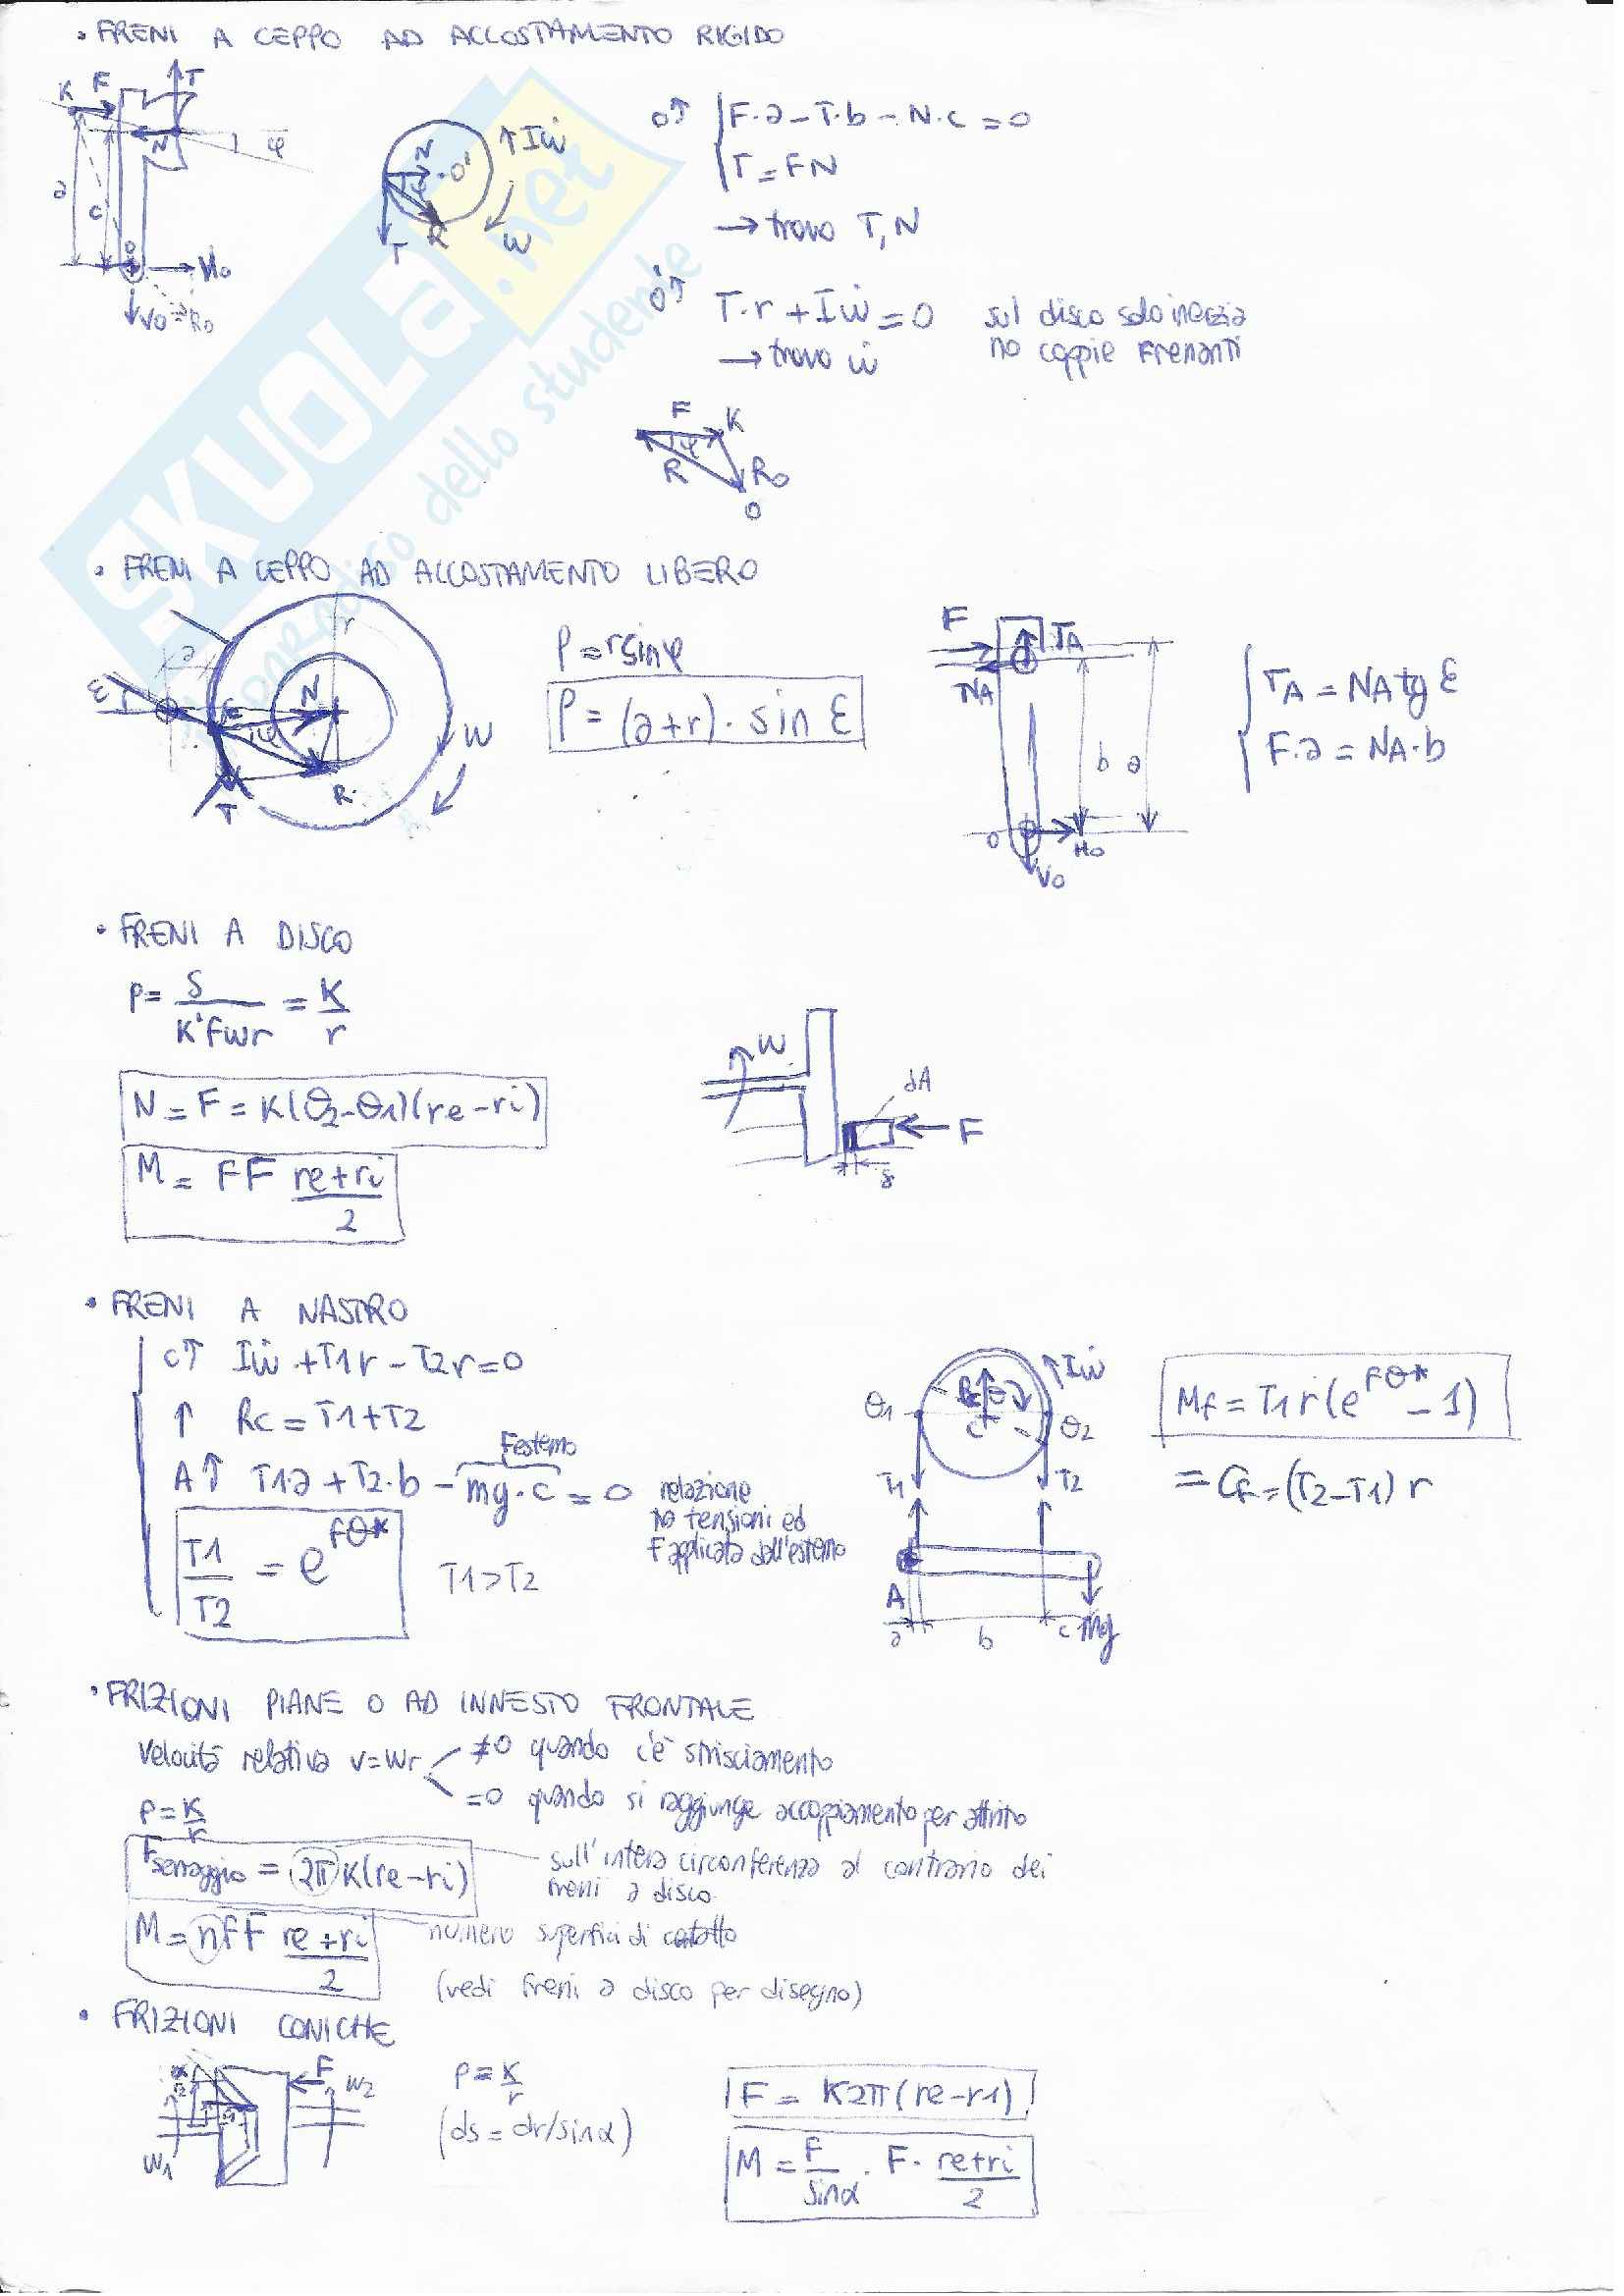 • FRENI A CEPPO AD ACCOSTAMENTO RIGIDO
K F T
N φ
a c
O H₀
V₀ R₀
N O' Iẇ
φ
T R W
O↑ { F·a - T·b - N·c = 0
T = fN
→ trovo T, N
O'↑ T·r + Iẇ = 0 sul disco solo inerzia
→ trovo ẇ no coppie frenanti
F K
φ
R R₀
O
SKUOLA.net
Il paradiso dello studente
• FRENI A CEPPO AD ACCOSTAMENTO LIBERO
r
a
ε N
φ W
T R
ρ = r sin φ
ρ = (a+r) · sin ε
F TA
NA
b a
O H₀
V₀
{ TA = NA tg ε
F·a = NA·b
• FRENI A DISCO
p = δ / K'fwr = K / r
N = F = K(θ2-θ1)(re-ri)
M = fF (re+ri) / 2
W
dA
F
δ
• FRENI A NASTRO
C↑ Iẇ + T1r - T2r = 0
↑ Rc = T1+T2
Festerno
A↑ T1·a + T2·b - mg·c = 0 relazione
tra tensioni ed
F applicata dall'esterno
T1 / T2 = e^fθ* T1>T2
Rc θ Iẇ
θ1 C θ2
T1 T2
A
a b c mg
Mf = T1r(e^fθ* - 1)
= Cf = (T2-T1) r
• FRIZIONI PIANE O AD INNESTO FRONTALE
Velocità relativa v=wr ≠0 quando c'è strisciamento
=0 quando si raggiunge accoppiamento per attrito
p = K / r
Fserraggio = 2π K(re-ri) sull'intera circonferenza al contrario dei
freni a disco
M = n f F (re+ri) / 2 numero superfici di contatto
(vedi freni a disco per disegno)
• FRIZIONI CONICHE
α F W2
W1
p = K / r
(ds = dr/sinα)
F = K2π(re-r1)
M = f / sinα · F · (re+ri) / 2